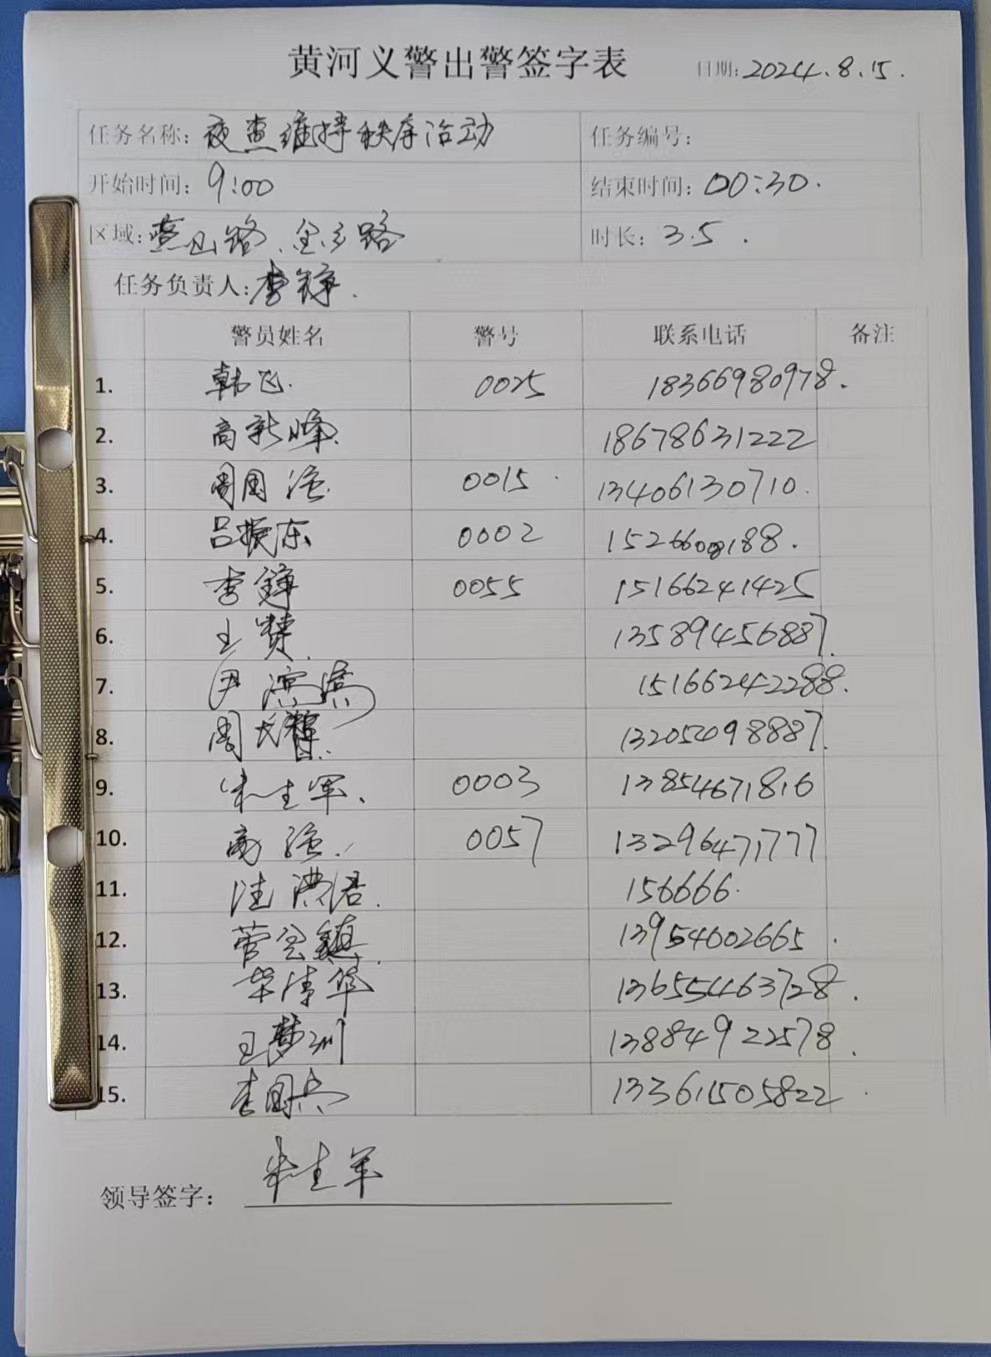 黄河义警出警签字表 日期:2024.8.15.
任务名称: 夜查维持秩序活动 任务编号:
开始时间: 9:00 结束时间: 00:30.
区域: 路、路 时长: 3.5.
任务负责人: 李錞.
警员姓名 警号 联系电话 备注
1. 韩飞. 0025 18366980978.
2. 高新峰. 18678631222
3. 周国强. 0015 13406130710.
4. 吕振东 0002
5. 李錞 0055 15166241425
6. 王赞. 13589456887.
7. 尹 15166242288.
8. 周 13205498887.
9. 朱生军. 0003 13854671816
10. 高强. 0057 13296471777
11. 汪洪浩. 156666.
12. 13954602665.
13. 华清华 13655463728.
14. 王梦 13884922578.
15. 李国 13361505822
领导签字: 朱生军